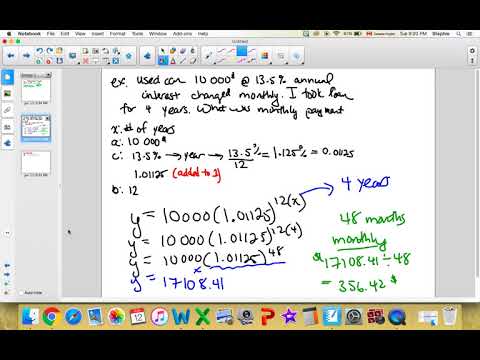 Notebook File Edit View Insert Format Tools Window Help
Untitled
ex: used car 10 000$ @ 13.5% annual
interest charged monthly. I took loan
for 4 years. What was monthly payment
x: # of years
a: 10 000$
c: 13.5% → year → 13.5%/12 = 1.125% = 0.01125
1.01125 (added to 1)
b: 12
y = 10000(1.01125)^12(x) → 4 years
y = 10 000(1.01125)^12(4)
y = 10 000(1.01125)^48
y = 17108.41
48 months
monthly
$17108.41 ÷ 48
= 356.42 $